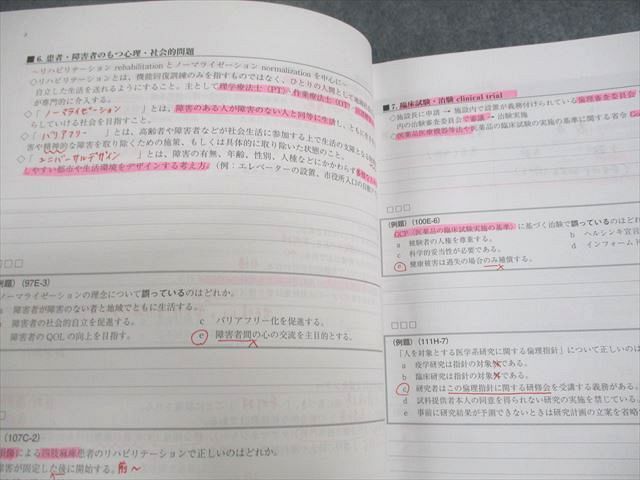 ■ 6. 患者・障害者のもつ心理・社会的問題
～リハビリテーション rehabilitation とノーマライゼーション normalization を中心に～
◇リハビリテーションとは、機能回復訓練のみを指すものではなく、ひとりの人間として
自立した生活を送れるようにすること。主として理学療法士(PT)・作業療法士(OT)・
が専門的に介入する。
◇「ノーマライゼーション」とは、障害のある人が障害のない人と同等に生活し、ともに
らしていける社会を目指すこと。
◇「バリアフリー」とは、高齢者や障害者などが社会生活に参加する上で生活の支障となる
害や精神的な障害を取り除くための施策、もしくは具体的に取り除いた状態のこと。
◇「ユニバーサルデザイン」とは、障害の有無、年齢、性別、人種などにかかわらず
しやすい都市や生活環境をデザインする考え方。(例：エレベーターの設置、市役所入口の
□□□
例題）(97E-3)
ノーマライゼーションの理念について誤っているのはどれか。
a 障害者が障害のない者と地域でともに生活する。
障害者の社会的自立を促進する。
c バリアフリー化を促進する。
障害者の QOL の向上を目指す。
e 障害者間の心の交流を主目的とする。
□□□
(107C-2)
損傷による四肢麻痺患者のリハビリテーションで正しいのはどれか。
障害が固定した後に開始する。前～
■ 7. 臨床試験・治験 clinical trial
◇施設長に申請 → 施設内で設置が義務付けられている倫理審査委員会
内の治験審査委員会で審議 → 治験実施
◇医薬品医療機器等法や医薬品の臨床試験の実施の基準に関する省令
□□□
（例題）(100E-6)
GCP（医薬品の臨床試験実施の基準）に基づく治験で誤っているのはどれか
a 被験者の人権を尊重する。
b ヘルシンキ宣言
c 科学的妥当性が必要である。
d インフォーム
e 健康被害は過失の場合のみ補償する。
□□□
（例題）(111H-7)
「人を対象とする医学系研究に関する倫理指針」について正しいのは
a 疫学研究は指針の対象である。
b 臨床研究は指針の対象である。
c 研究者はこの倫理指針に関する研修会を受講する義務がある。
d 試料提供者本人の同意を得られない研究の実施を禁じている。
e 事前に研究結果が予測できないときは研究計画の立案を省略